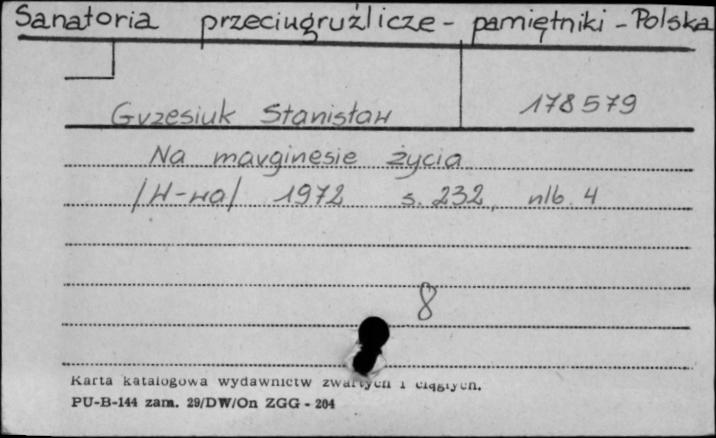 Sanatoria przeciwgruźlicze - pamiętniki - Polska
178579
Grzesiuk Stanisław
Na marginesie życia
/W-wa/ 1972 s. 232, nlb. 4
8
Karta katalogowa wydawnictw zwartych i ciągłych.
PU-B-144 zam. 29/DW/On ZGG - 204